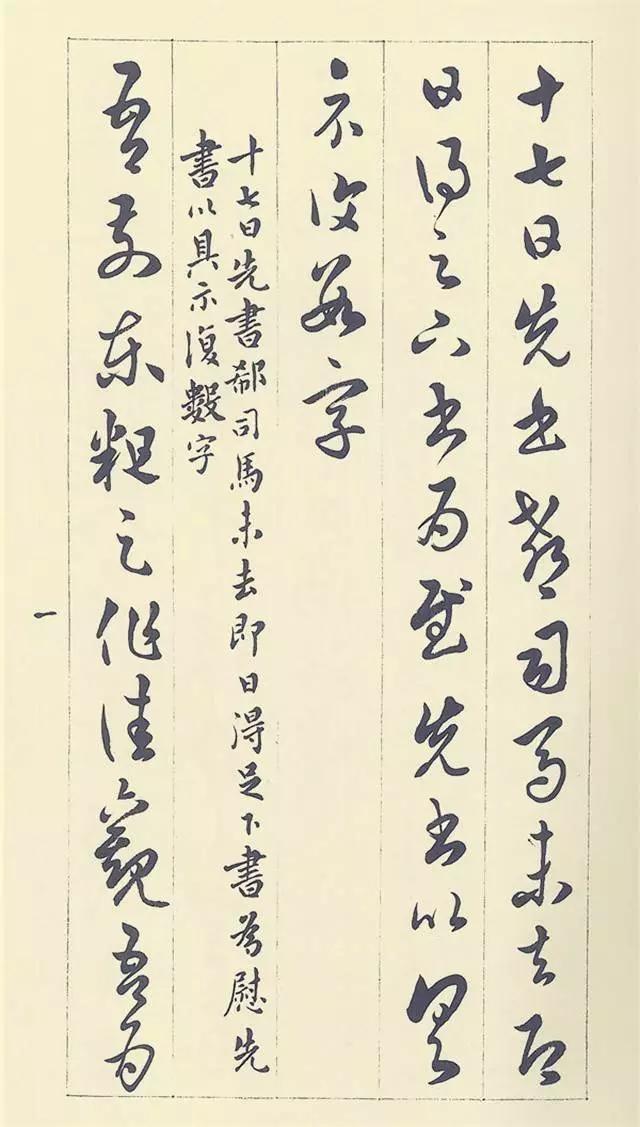 十七日先書郗司馬未去即
日得足下書為慰先書以具
示復數字
十七日先書郗司馬未去即日淂足下書為慰先
書以具示復數字
吾前東粗足作佳觀吾為
一